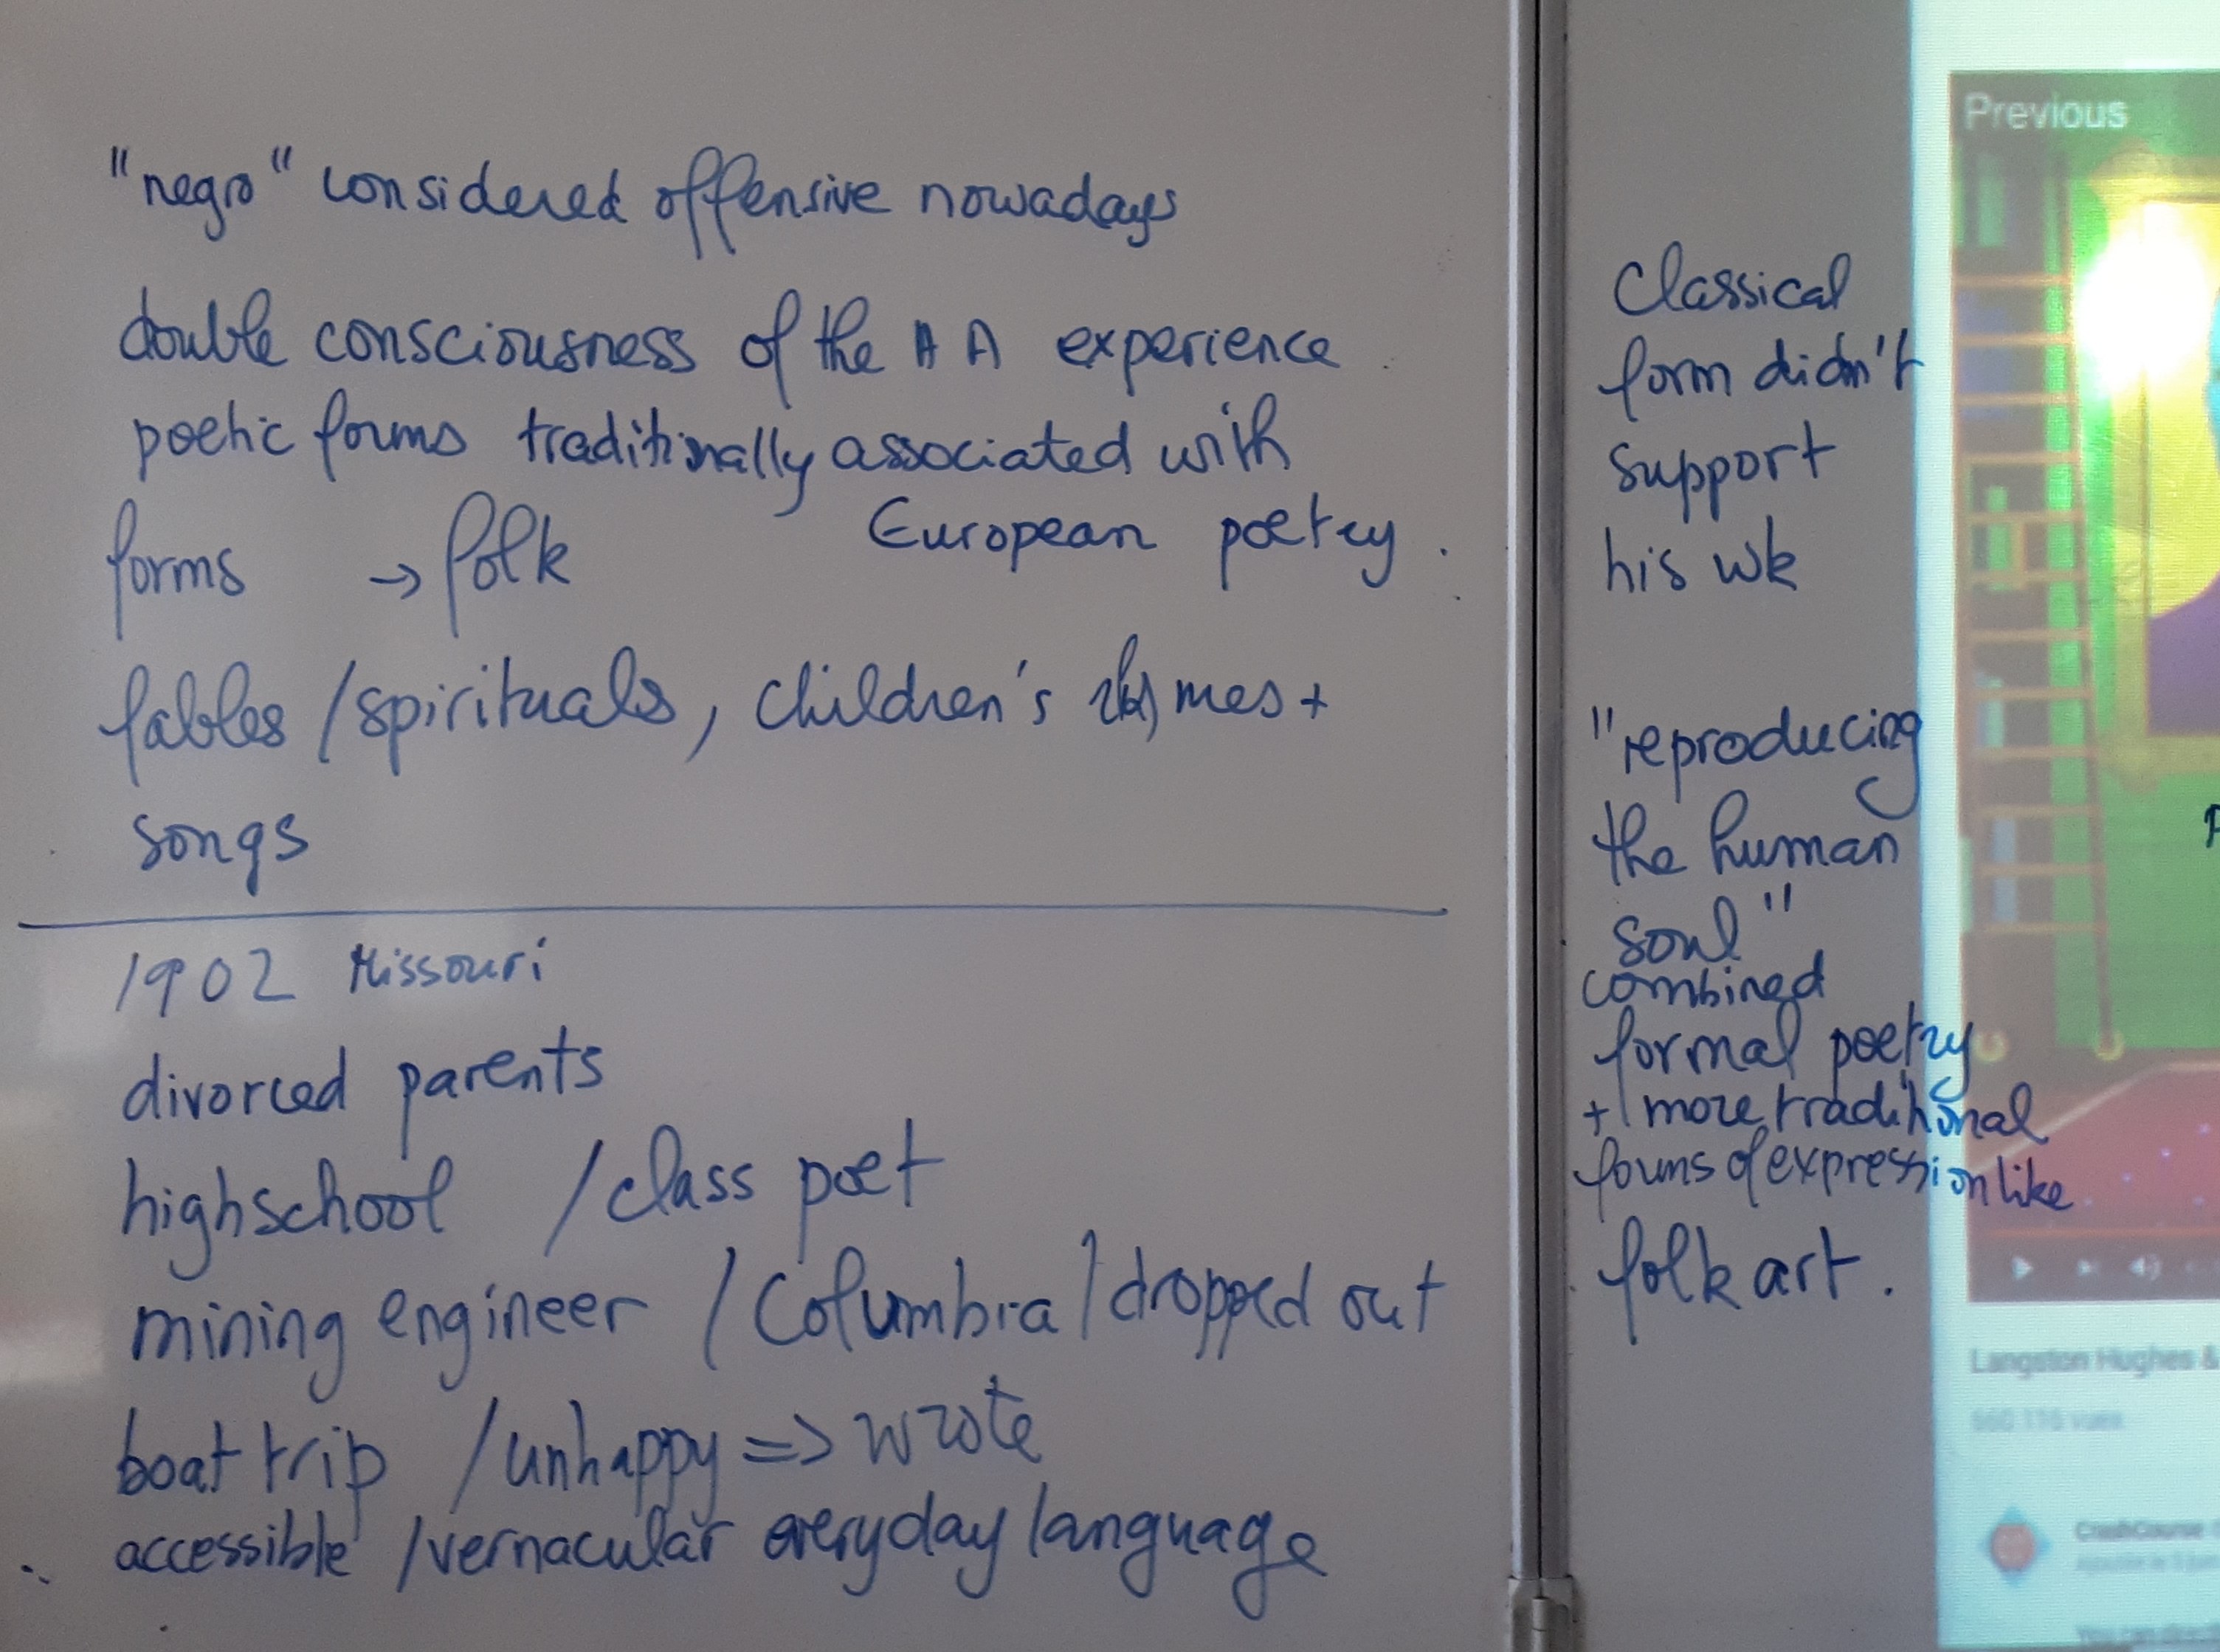 "negro" considered offensive nowadays
double consciousness of the AA experience
poetic forms traditionally associated with
European poetry.
forms → folk
fables / spirituals, children's rhymes +
songs
1902 Missouri
divorced parents
highschool / class poet
mining engineer / Columbia / dropped out
boat trip / unhappy => wrote
accessible / vernacular everyday language
Classical
form didn't
support
his wk
"reproducing
the human
soul"
combined
formal poetry
+ more traditional
forms of expression like
folk art.
Previous
Langston Hughes &
CrashCourse